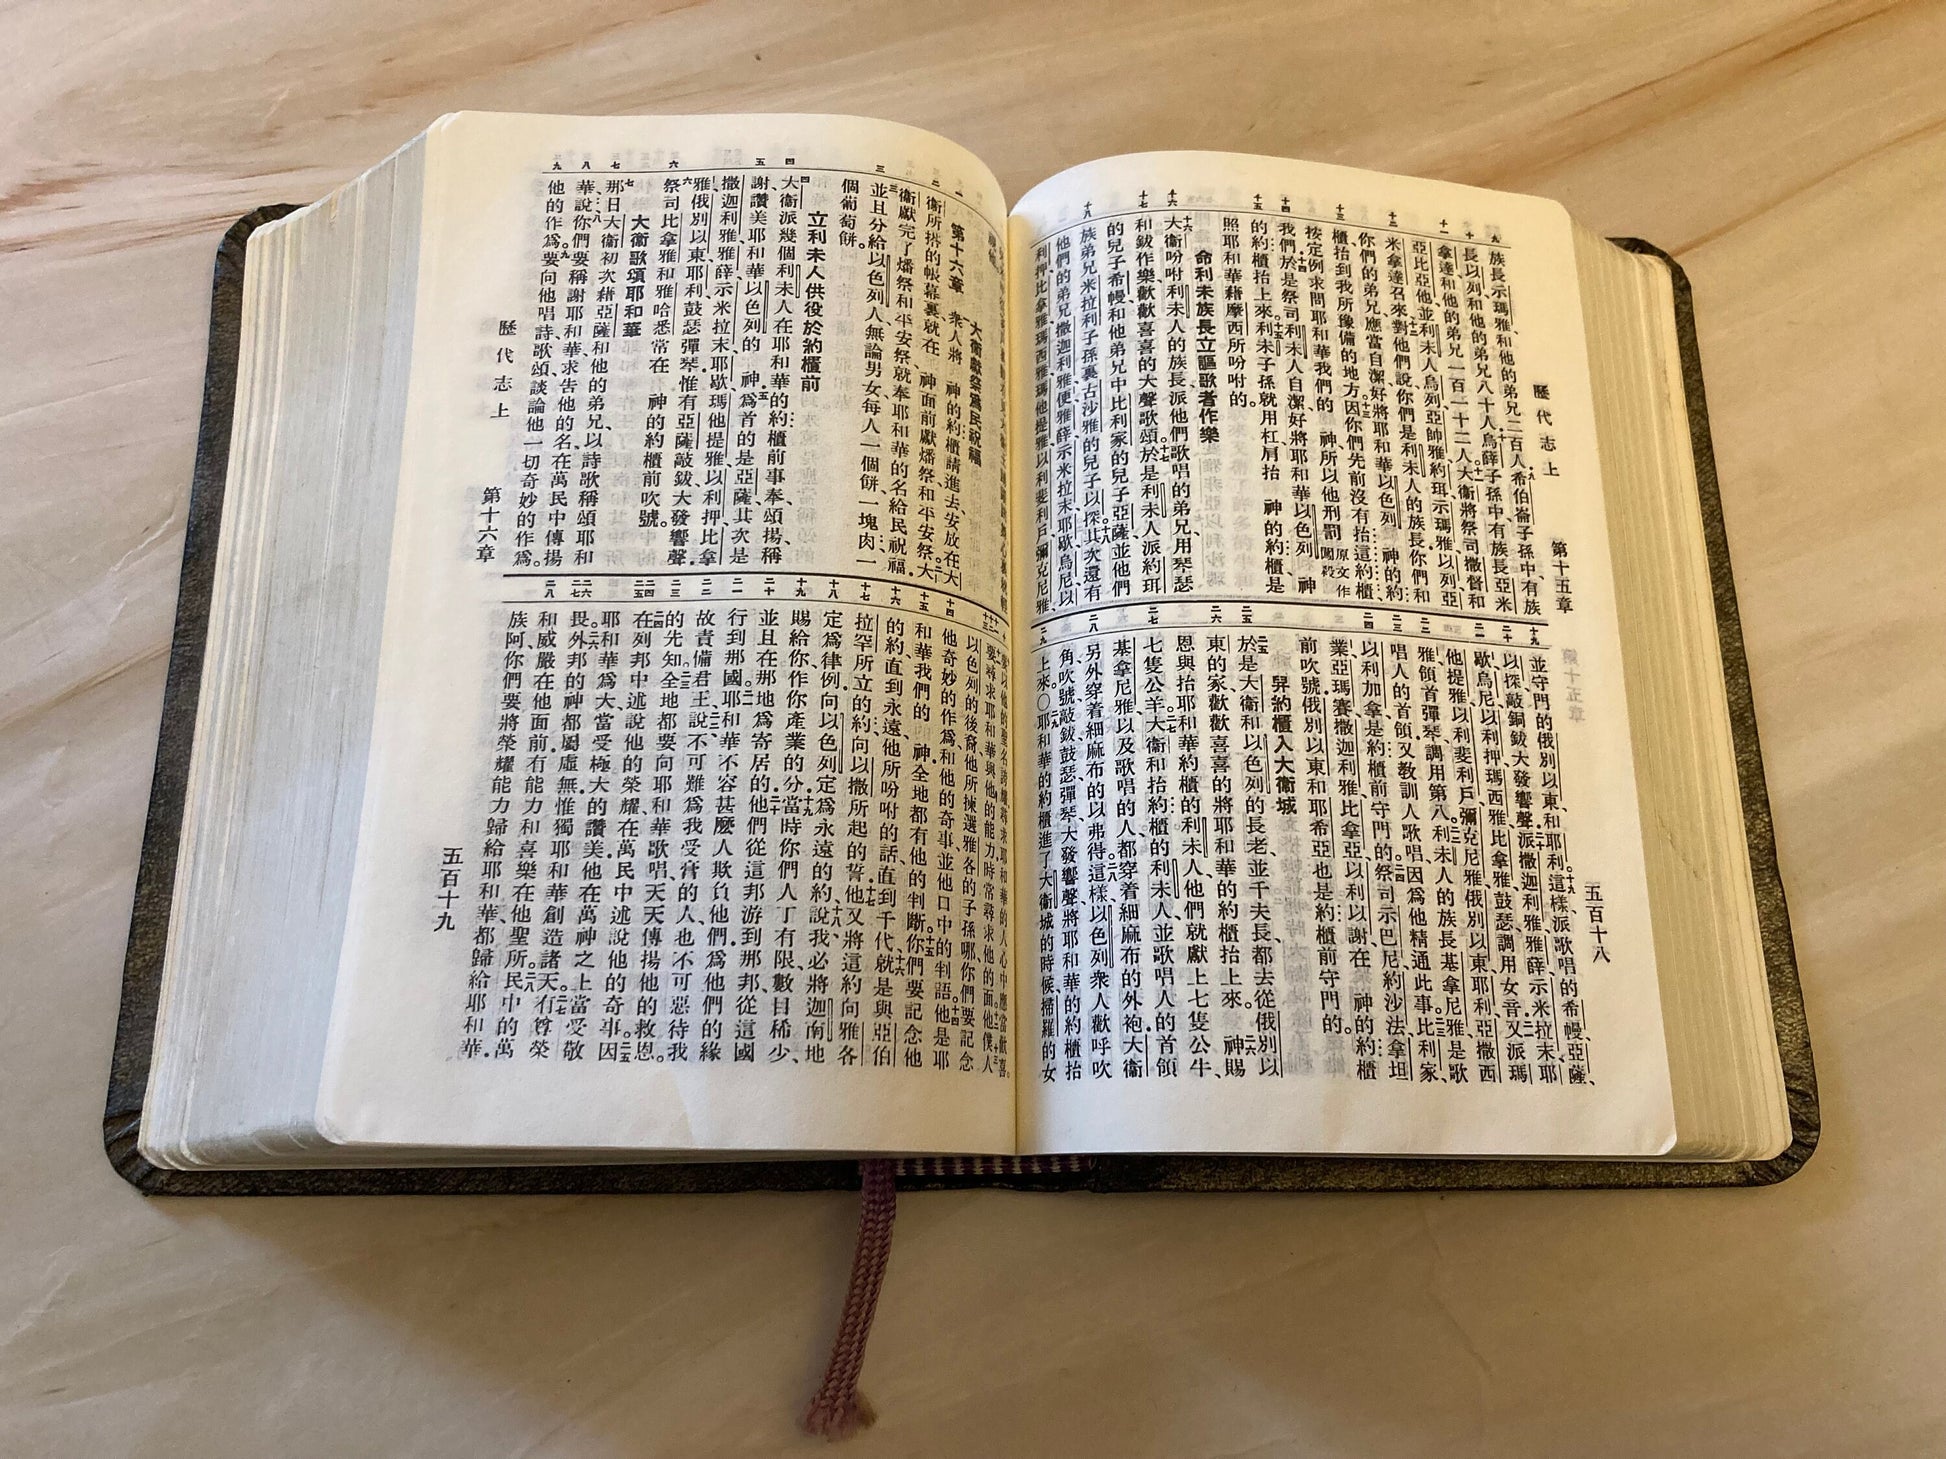 歷代志上　第十五章　五百十八
九　十　十一　十二　十三　十四　十五　十六　十七　十八
族長示瑪雅、和他的弟兄二百人。九希伯崙子孫中有族
長以列、和他的弟兄八十人。十烏薛子孫中有族長亞米
拿達、和他的弟兄一百一十二人。十一大衞將祭司撒督、和
亞比亞他、並利未人烏列、亞帥雅、約珥、示瑪雅、以列、亞
米拿達召來、十二對他們說、你們是利未人的族長、你們和
你們的弟兄應當自潔、好將耶和華以色列　神的約
櫃、抬到我所豫備的地方。十三因你們先前沒有抬這約櫃、
按定例求問耶和華我們的　神、所以他刑罰原文作闖殺
我們。十四於是祭司利未人自潔、好將耶和華以色列　神
的約櫃抬上來。十五利未子孫就用杠肩抬　神的約櫃、是
照耶和華藉摩西所吩咐的。
命利未族長立謳歌者作樂
十六大衞吩咐利未人的族長、派他們歌唱的弟兄、用琴瑟
和鈸作樂、歡歡喜喜的大聲歌頌。十七於是利未人派約珥
的兒子希幔、和他弟兄中比利家的兒子亞薩、並他們
族弟兄米拉利子孫裏古沙雅的兒子以探。十八其次還有
他們的弟兄撒迦利雅、便雅薛、示米拉末、耶歇、烏尼、以
利押、比拿雅、瑪西雅、瑪他提雅、以利斐利戶、彌克尼雅、
十九　二十　二一　二二　二三　二四　二五　二六　二七　二八　二九
並守門的俄別以東、和耶利。十九這樣派歌唱的希幔、亞薩、
以探、敲銅鈸大發響聲。二十派撒迦利雅、雅薛、示米拉末、耶
歇、烏尼、以利押、瑪西雅、比拿雅、鼓瑟、調用女音。二一又派瑪
他提雅、以利斐利戶、彌克尼雅、俄別以東、耶利、亞撒西
雅、領首彈琴、調用第八。二二利未人的族長基拿尼雅、是歌
唱人的首領、又教訓人歌唱、因為他精通此事。二三比利家、
以利加拿、是約櫃前守門的。二四祭司示巴尼、約沙法、拿坦
業、亞瑪賽、撒迦利雅、比拿亞、以利以謝、在　神的約櫃
前吹號。俄別以東和耶希亞、也是約櫃前守門的。
舁約櫃入大衞城
二五於是大衞和以色列的長老、並千夫長、都去從俄別以
東的家、歡歡喜喜的將耶和華的約櫃抬上來。二六　神賜
恩與抬耶和華約櫃的利未人、他們就獻上七隻公牛、
七隻公羊。二七大衞和抬約櫃的利未人、並歌唱人的首領
基拿尼雅、以及歌唱的人、都穿着細麻布的外袍、大衞
另外穿着細麻布的以弗得。二八這樣、以色列衆人歡呼吹
角、吹號、敲鈸、鼓瑟、彈琴、大發響聲、將耶和華的約櫃抬
上來。○二九耶和華的約櫃進了大衞城的時候、掃羅的女
歷代志上　第十六章　五百十九
一　二　三　四　五　六　七　八　九
第十六章　大衞獻祭爲民祝福
一衆人將　神的約櫃請進去、安放在大
衞所搭的帳幕裏、就在　神面前獻燔祭和平安祭。二大
衞獻完了燔祭和平安祭、就奉耶和華的名給民祝福。
三並且分給以色列人、無論男女、每人一個餅、一塊肉、一
個葡萄餅。
立利未人供役於約櫃前
四大衞派幾個利未人在耶和華的約櫃前事奉、頌揚、稱
謝、讚美耶和華以色列的　神。五爲首的是亞薩、其次是
撒迦利雅、雅薛、示米拉末、耶歇、瑪他提雅、以利押、比拿
雅、俄別以東、耶利、鼓瑟彈琴、惟有亞薩敲鈸、大發響聲。
六祭司比拿雅、和雅哈悉、常在　神的約櫃前吹號。
大衞歌頌耶和華
七那日大衞初次藉亞薩和他的弟兄、以詩歌稱頌耶和
華、說、八你們要稱謝耶和華、求告他的名、在萬民中傳揚
他的作爲。九要向他唱詩、歌頌、談論他一切奇妙的作爲。
十　十一　十二　十三　十四　十五　十六　十七　十八　十九　二十　二一　二二　二三　二四　二五　二六　二七　二八
要以他的聖名誇耀、尋求耶和華的人、心中應當歡喜。
十一要尋求耶和華與他的能力、時常尋求他的面。十二、十三他僕人
以色列的後裔、他所揀選雅各的子孫哪、你們要記念
他奇妙的作爲、和他的奇事、並他口中的判語。十四他是耶
和華我們的　神、全地都有他的判斷。十五你們要記念他
的約、直到永遠、他所吩咐的話、直到千代。十六就是與亞伯
拉罕所立的約、向以撒所起的誓。十七他又將這約向雅各
定爲律例、向以色列定爲永遠的約、十八說、我必將迦南地
賜給你、作你產業的分。十九當時你們人丁有限、數目稀少、
並且在那地爲寄居的。二十他們從這邦游到那邦、從這國
行到那國。二一耶和華不容甚麼人欺負他們、爲他們的緣
故責備君王、二二說、不可難爲我受膏的人、也不可惡待我
的先知。二三全地都要向耶和華歌唱、天天傳揚他的救恩。
二四在列邦中述說他的榮耀、在萬民中述說他的奇事。二五因
耶和華爲大、當受極大的讚美、他在萬神之上當受敬
畏。二六外邦的神都屬虛無、惟獨耶和華創造諸天。二七有尊榮
和威嚴在他面前、有能力和喜樂在他聖所。二八民中的萬
族阿、你們要將榮耀能力歸給耶和華、都歸給耶和華。